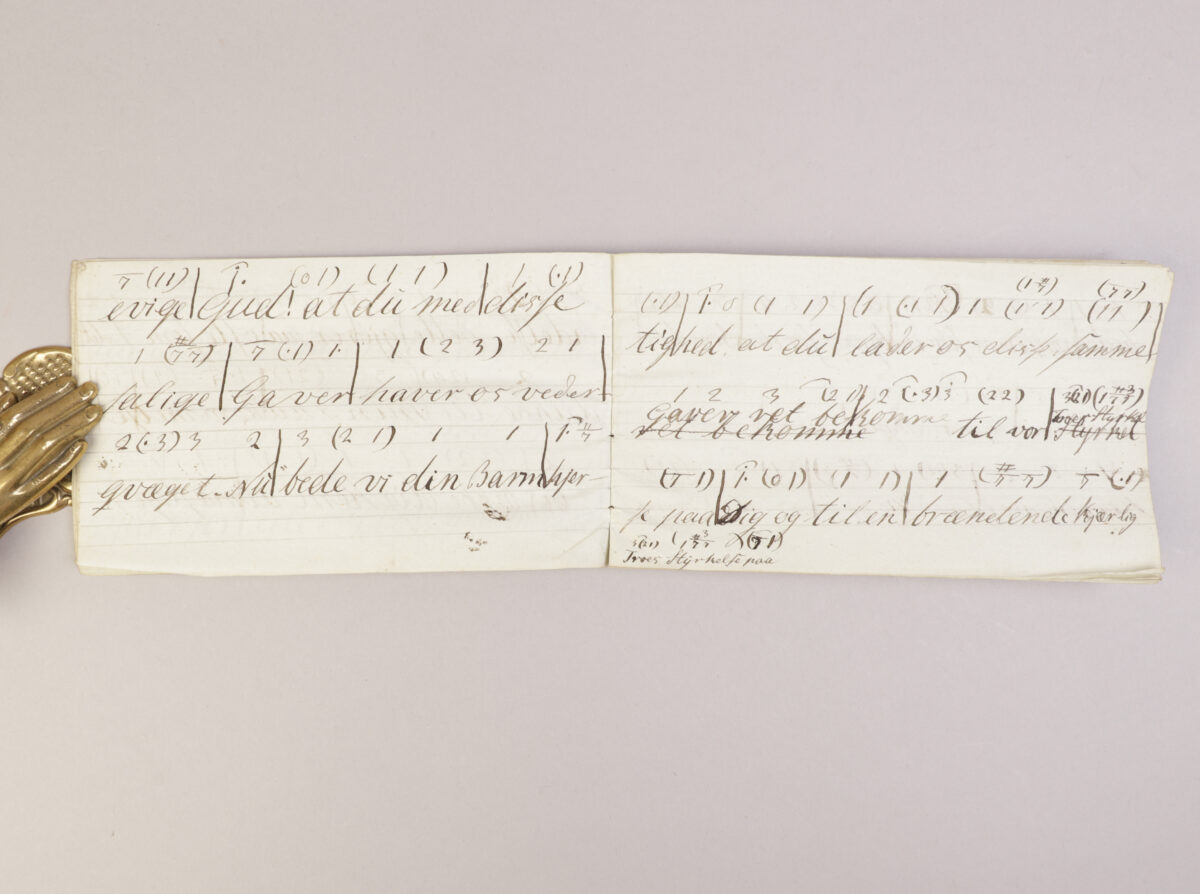 7 (11) | 1. (0 1) (1 1) | 1 (.1)
evige Gud! at du med disse
1 (#7 7) | 7 (.1) 1. | 1 (2 3) 2 1
salige Gaver haver os veder-
2 (.3) 3 2 | 3 (2 1) 1 1 | 1. #7
qvæget. Nu bede vi din Barmhjer-
(1 #7) (7 7)
(.1) | 1. 0 (1 1) | (1 .1 1) 1 (1 1) (1 1)
tighed at du lader os disse samme
1 2 3 (2 1) | 2 (.3) 3 (2 2)
gaver vel bekomme Troes Styrkel
vel bekomme til vor Styrkel
(7 1) | 1. (0 1) (1 1) | 1 (#7 7) 7 (.1)
se paa Dig og til en brændende kjærlig
Troes Styrkelse paa